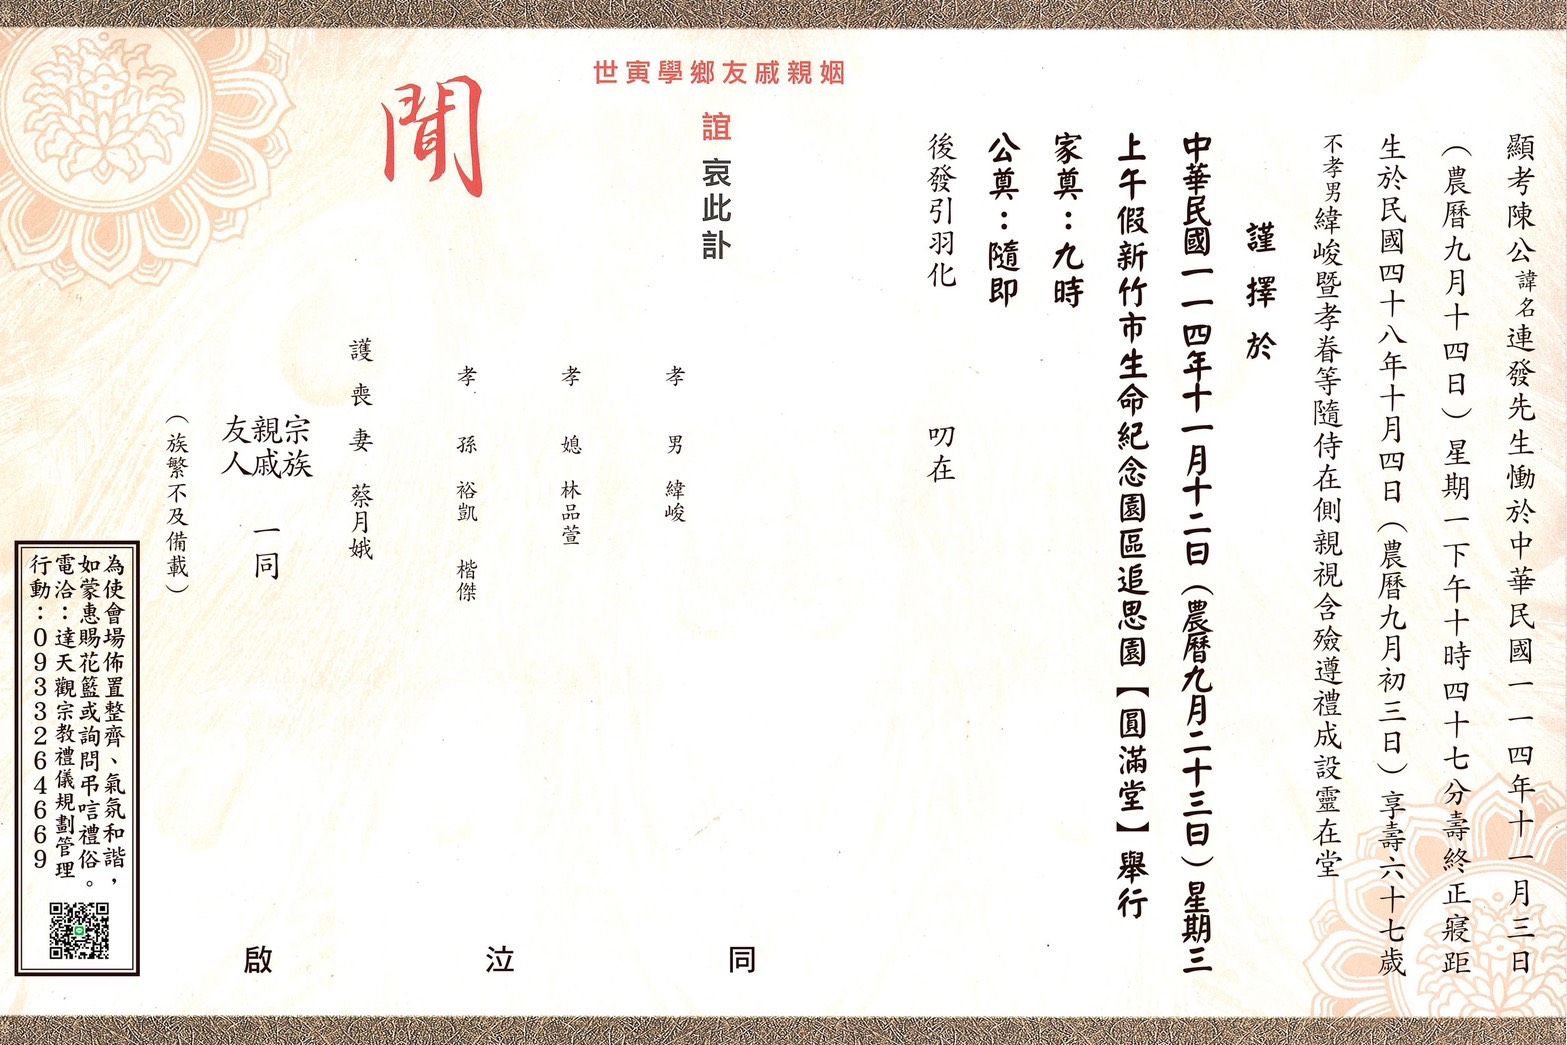 顯考陳公諱名連發先生慟於中華民國一一四年十一月三日
（農曆九月十四日）星期一下午十時四十七分壽終正寢距
生於民國四十八年十月四日（農曆九月初三日）享壽六十七歲
不孝男緯峻暨孝眷等隨侍在側親視含殮遵禮成設靈在堂
謹擇於
中華民國一一四年十一月十二日（農曆九月二十三日）星期三
上午假新竹市生命紀念園區追思園【圓滿堂】舉行
家奠：九時
公奠：隨即
後發引羽化
叨在
世寅學鄉友戚親姻
誼哀此訃
聞
孝男 緯峻
孝媳 林品萱
孝孫 裕凱 楷傑
護喪妻 蔡月娥
宗族
親戚
友人
一同
（族繁不及備載）
同 泣 啟
為使會場佈置整齊、氣氛和諧，
如蒙惠賜花籃或詢問弔唁禮俗。
電洽：達天觀宗教禮儀規劃管理
行動：0933264669